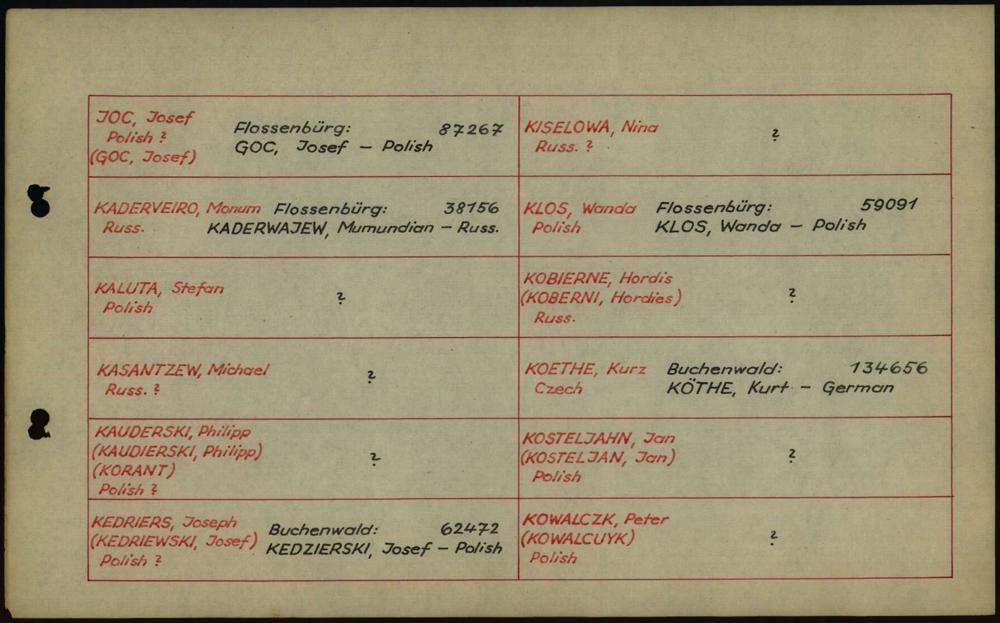 JOC, Josef
Polish ?
(GOC, Josef)
Flossenbürg: 87267
GOC, Josef – Polish
KISELOWA, Nina
Russ. ?
?
KADERVEIRO, Monum
Russ.
Flossenbürg: 38156
KADERWAJEW, Mumundian – Russ.
KLOS, Wanda
Polish
Flossenbürg: 59091
KLOS, Wanda – Polish
KALUTA, Stefan
Polish
?
KOBIERNE, Hordis
(KOBERNI, Hordies)
Russ.
?
KASANTZEW, Michael
Russ. ?
?
KOETHE, Kurz
Czech
Buchenwald: 134656
KÖTHE, Kurt – German
KAUDERSKI, Philipp
(KAUDIERSKI, Philipp)
(KORANT)
Polish ?
?
KOSTELJAHN, Jan
(KOSTELJAN, Jan)
Polish
?
KEDRIERS, Joseph
(KEDRIEWSKI, Josef)
Polish ?
Buchenwald: 62472
KEDZIERSKI, Josef – Polish
KOWALCZK, Peter
(KOWALCUYK)
Polish
?